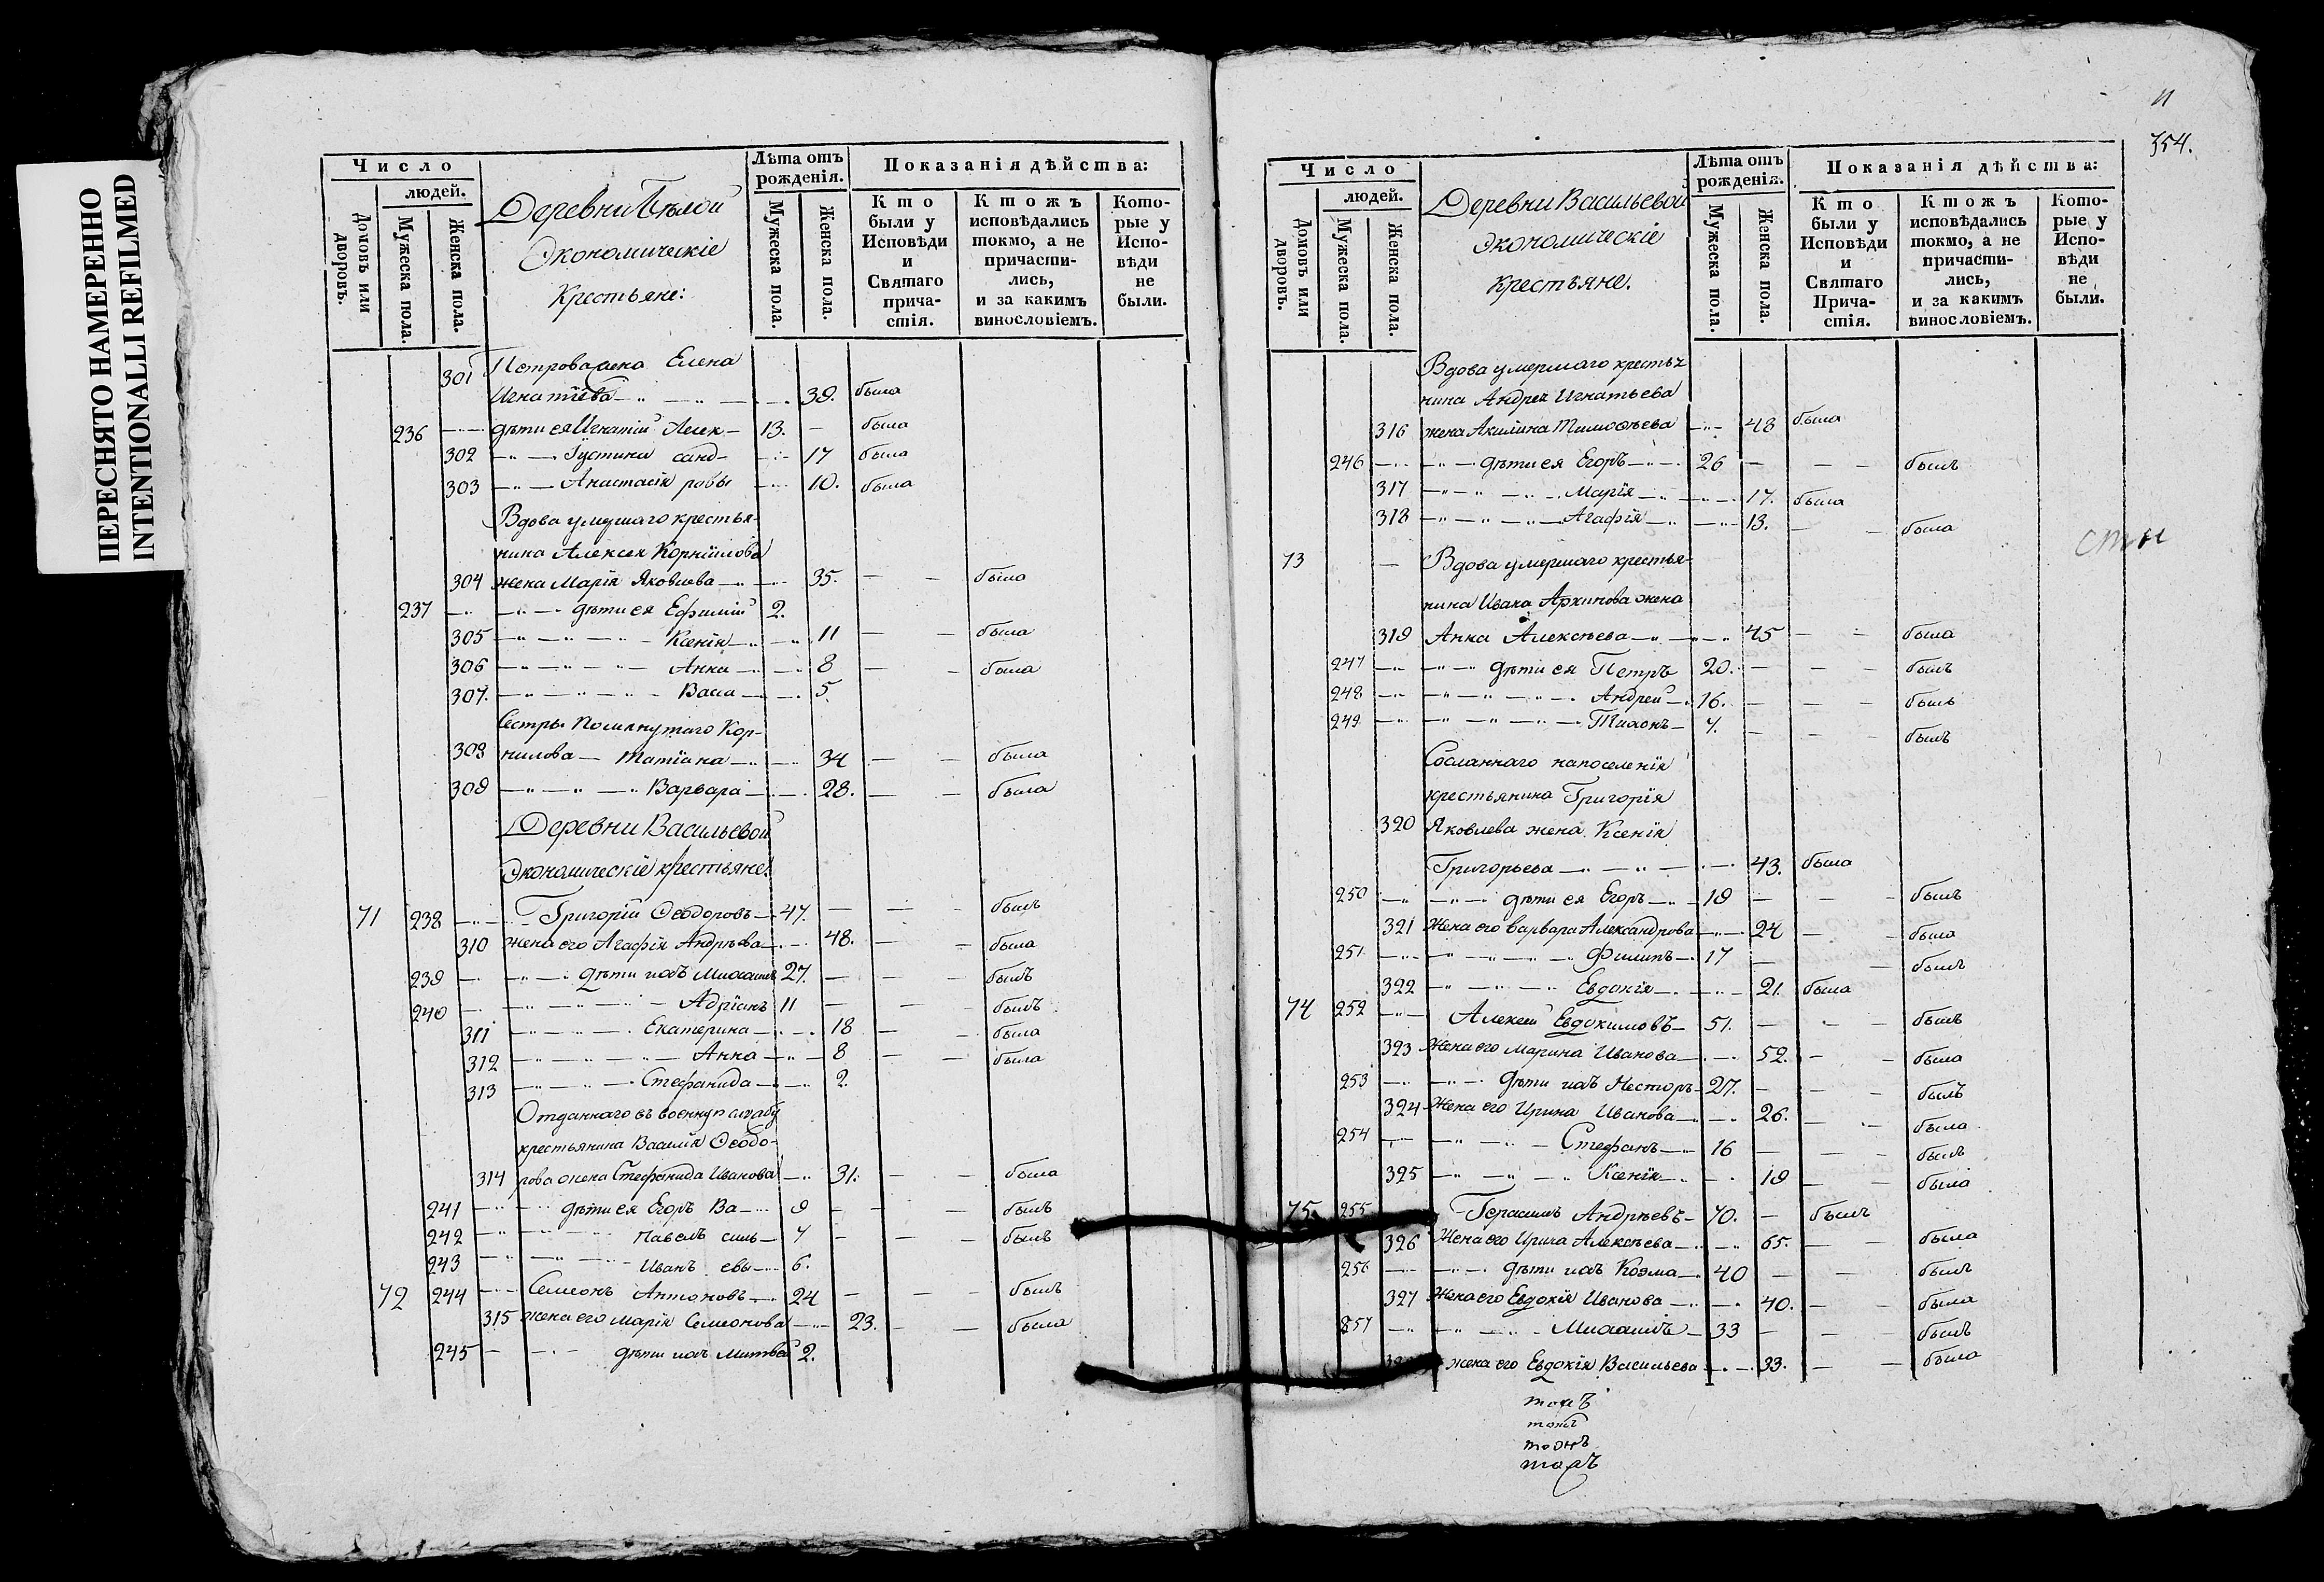 ПЕРЕСНЯТО НАМЕРЕННО
INTENTIONALLI REFILMED
Число
людей.
Домовъ или дворовъ.
Мужеска пола.
Женска пола.
Деревни Бѣлой
Экономическіе
Крестьяне:
Лѣта отъ рожденія.
Мужеска пола.
Женска пола.
Показанія дѣйства:
Кто были у Исповѣди и Святаго причастія.
Ктожъ исповѣдались токмо, а не причастились, и за какимъ винословіемъ.
Которые у Исповѣди не были.
301 Петрова жена Елена
Игнатіева 39. была
236 дѣти ея Игнатій Алек- 13. была
302 Іустина санд- 17 была
303 Анастасія ровы 10. была
Вдова умершаго крестья-
нина Алексея Корнилова
304 жена Марія Яковлева 35. была
237 дѣти ея Ефимій 2.
305 Ксенія 11 была
306 Анна 8 была
307. Васса 5.
Сестры помянутаго Кор-
308 нилова Татіана 34 была
309 Варвара 28. была
Деревни Васильевой
Экономическіе крестьяне:
71 238 Григорій Ѳеодоровъ 47. былъ
310 жена его Агафія Андрѣева 48. была
239 дѣти ихъ Михаилъ 27. былъ
240 Адріанъ 11 былъ
311 Екатерина 18 была
312 Анна 8 была
313 Стефанида 2.
Отданнаго въ военную службу
крестьянина Василія Ѳеодо-
314 рова жена Стефанида Иванова 31. была
241 дѣти ея Егоръ Ва- 9 былъ
242 Павелъ силь- 7 былъ
243 Иванъ евы 6.
72 244 Симеонъ Антоновъ 24 былъ
315 жена его Марія Семионова 23. была
245 дѣти ихъ Матвей 2.
11
354.
Число
людей.
Домовъ или дворовъ.
Мужеска пола.
Женска пола.
Деревни Васильевой
Экономическіе
крестьяне.
Лѣта отъ рожденія.
Мужеска пола.
Женска пола.
Показанія дѣйства:
Кто были у Исповѣди и Святаго Причастія.
Ктожъ исповѣдались токмо, а не причастились, и за какимъ винословіемъ.
Которые у Исповѣди не были.
Вдова умершаго крестья-
нина Андрея Игнатьева
316 жена Акилина Тимоѳеева 48 была
246 дѣти ея Егоръ 26 былъ
317 Марія 17. была
318 Агафія 13. была
73 Вдова умершаго крестья-
нина Ивана Архипова жена
319 Анна Алексѣева 45 была
247 дѣти ея Петръ 20. былъ
248 Андрей 16. былъ
249 Тихонъ 7. былъ
Сосланнаго на поселенія
крестьянина Григорія
320 Яковлева жена Ксенія
Григорьева 43. была
250 дѣти ея Егоръ 19 былъ
321 Жена его Варвара Александрова 24 была
251 Филипъ 17 былъ
322 Евдокія 21. была
74 252 Алексей Евдокимовъ 51. былъ
323 Жена его Марина Иванова 52. была
253 дѣти ихъ Несторъ 27. былъ
324 Жена его Ирина Иванова 26. была
254 Стефанъ 16 былъ
325 Ксенія 19 была
75. 255 Герасимъ Андрѣевъ 70. былъ
326 Жена его Ирина Алексѣева 65. была
256 дѣти ихъ Козма 40 былъ
327 Жена его Евдокія Иванова 40. была
257 Михаилъ 33 былъ
жена его Евдокія Васильева 33. была